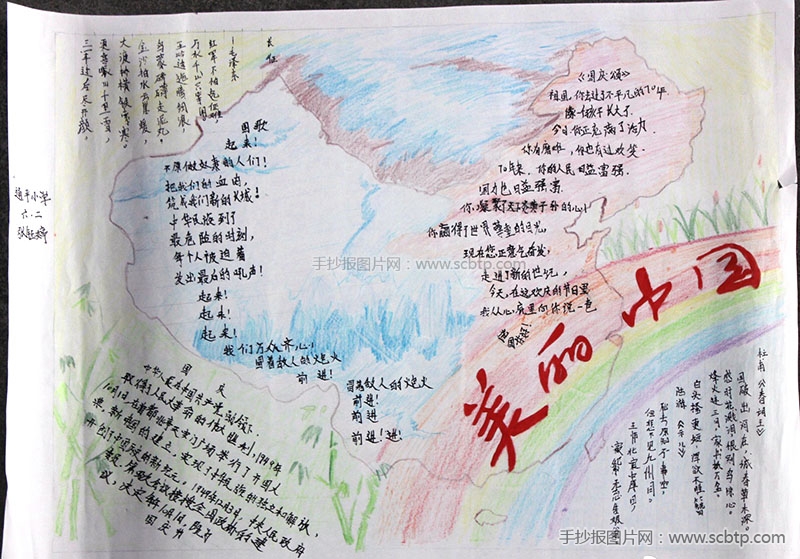 长征
—毛泽东
红军不怕远征难
万水千山只等闲
五岭逶迤腾细浪,
乌蒙磅礴走泥丸。
大渡桥横铁索寒。
更喜岷山千里雪,
三军过后尽开颜。
小学
六.二
国歌
起来!
不愿做奴隶的人们!
把我们的血肉,
筑成我们新的长城!
中华民族到了
最危险的时刻,
每个人被迫着
发出最后的吼声!
起来!
起来!
起来!
我们万众一心,
冒着敌人的炮火
前进!
冒着敌人的炮火
前进!
前进
前进!进!
《国庆颂》
祖国,你走过了不平凡的70年
像一个孩子长大了
今日你正充满了活力
你有磨难,你也有过欢笑
70年来,你的人民日益富强
国力也日益强盛
你,凝聚了天下炎黄子孙的心
你赢得了世界羡慕的目光
现在您正意气奋发,
走进了新的世纪,
今天,在这欢庆的节日里
我从心底里向你说一色
美丽中国
国庆
取得了人民大革命的伟大胜利,1949年
10月1日在首都北京天安门广场举行了开国大
典,新中国的建立,实现了中华民族的独立和解放,
开创了中国历史的新纪元,1949年12月3日,中央人民政府
国庆节
杜甫《春望》
感时花溅泪,恨别鸟惊心。
烽火连三月,家书抵万金。
白头搔更短,浑欲不胜簪
陆游《示儿》
死去元知万事空,
但悲不见九州同。
王师北定中原日,
家祭无忘告乃翁
手抄报图片网:www.scbtp.com
手抄报图片网:www.scbtp.com